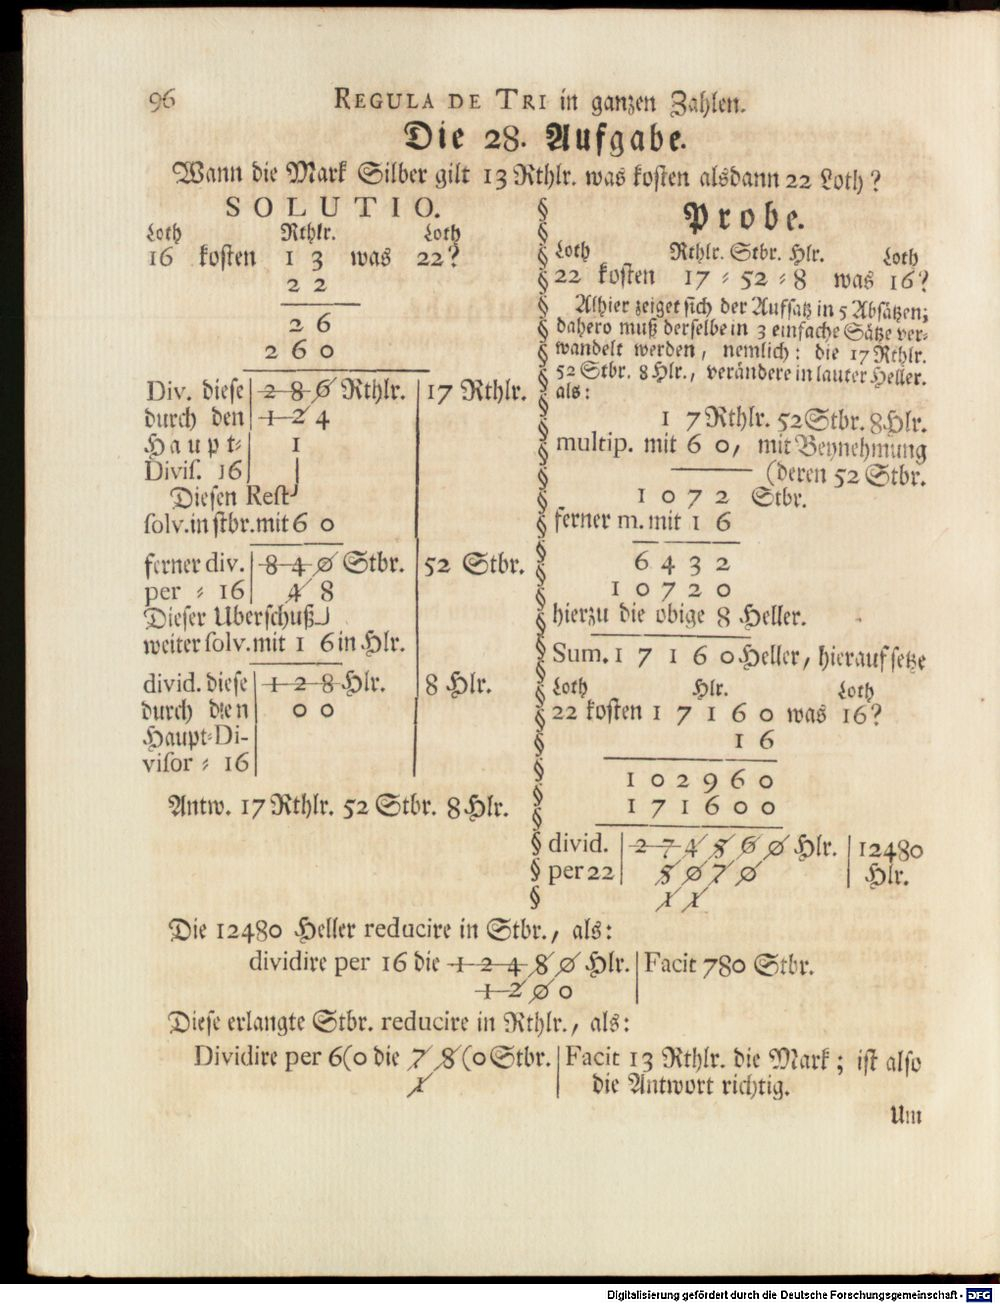 96 REGULA DE TRI in ganzen Zahlen.
Die 28. Aufgabe.
Wann die Mark Silber gilt 13 Rthlr. was kosten alsdann 22 Loth?
SOLUTIO.
Loth Rthlr. Loth
16 kosten 1 3 was 22?
2 2
2 6
2 6 0
Div. diese 2 8 6 Rthlr. 17 Rthlr.
durch den 1 2 4
Haupt- 1
Divis. 16
Diesen Rest
solv. in stbr. mit 6 0
ferner div. 8 4 0 Stbr. 52 Stbr.
per = 16 4 8
Dieser Uberschuß
weiter solv. mit 1 6 in Hlr.
divid. diese 1 2 8 Hlr. 8 Hlr.
durch den 0 0
Haupt-Di-
visor = 16
Antw. 17 Rthlr. 52 Stbr. 8 Hlr.
Probe.
Loth Rthlr. Stbr. Hlr. Loth
22 kosten 17 = 52 = 8 was 16?
Alhier zeiget sich der Aufsatz in 5 Absätzen;
dahero muß derselbe in 3 einfache Sätze ver-
wandelt werden, nemlich: die 17 Rthlr.
52 Stbr. 8 Hlr., verändere in lauter Heller.
als:
1 7 Rthlr. 52 Stbr. 8 Hlr.
multip. mit 6 0, mit Beynehmung
(deren 52 Stbr.
1 0 7 2 Stbr.
ferner m. mit 1 6
6 4 3 2
1 0 7 2 0
hierzu die obige 8 Heller.
Sum. 1 7 1 6 0 Heller, hierauf setze
Loth Hlr. Loth
22 kosten 1 7 1 6 0 was 16?
1 6
1 0 2 9 6 0
1 7 1 6 0 0
divid. 2 7 4 5 6 0 Hlr. 12480
per 22 5 0 7 0 Hlr.
1 1
Die 12480 Heller reducire in Stbr., als:
dividire per 16 die 1 2 4 8 0 Hlr. Facit 780 Stbr.
1 2 0 0
Diese erlangte Stbr. reducire in Rthlr., als:
Dividire per 6(0 die 7 8 (0 Stbr. Facit 13 Rthlr. die Mark; ist also
1 die Antwort richtig.
Um
Digitalisierung gefördert durch die Deutsche Forschungsgemeinschaft - DFG